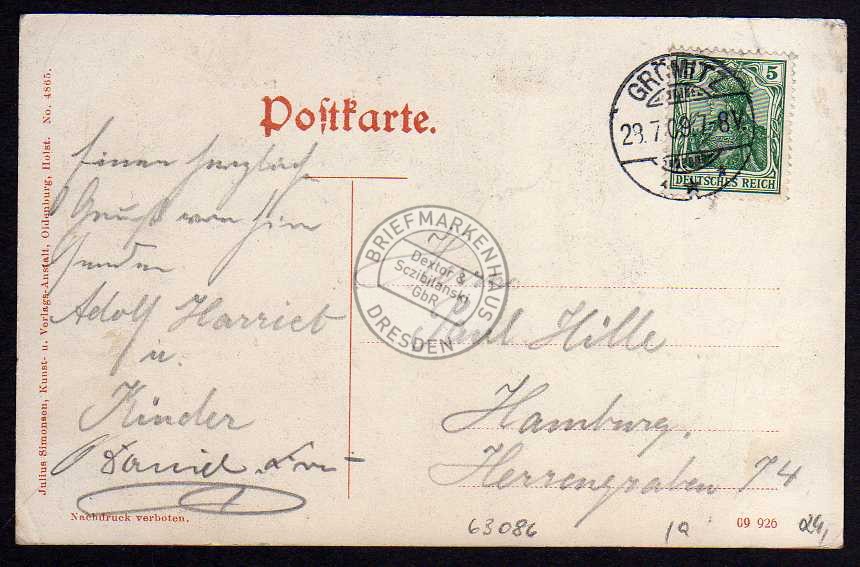 Postkarte.
GRÖMITZ
28.7.09.7-8V.
5
DEUTSCHES REICH
Einen herzlich
Gruß von hier
senden
Adolf Harriet
u.
Kinder
Daniel
Paul Hille
Hamburg,
Herrengraben 74
BRIEFMARKENHAUS
Dextor &
Sczibilanski
GbR
DRESDEN
Julius Simonsen, Kunst- u. Verlags-Anstalt, Oldenburg, Holst. No. 4865.
Nachdruck verboten.
63086
09 926